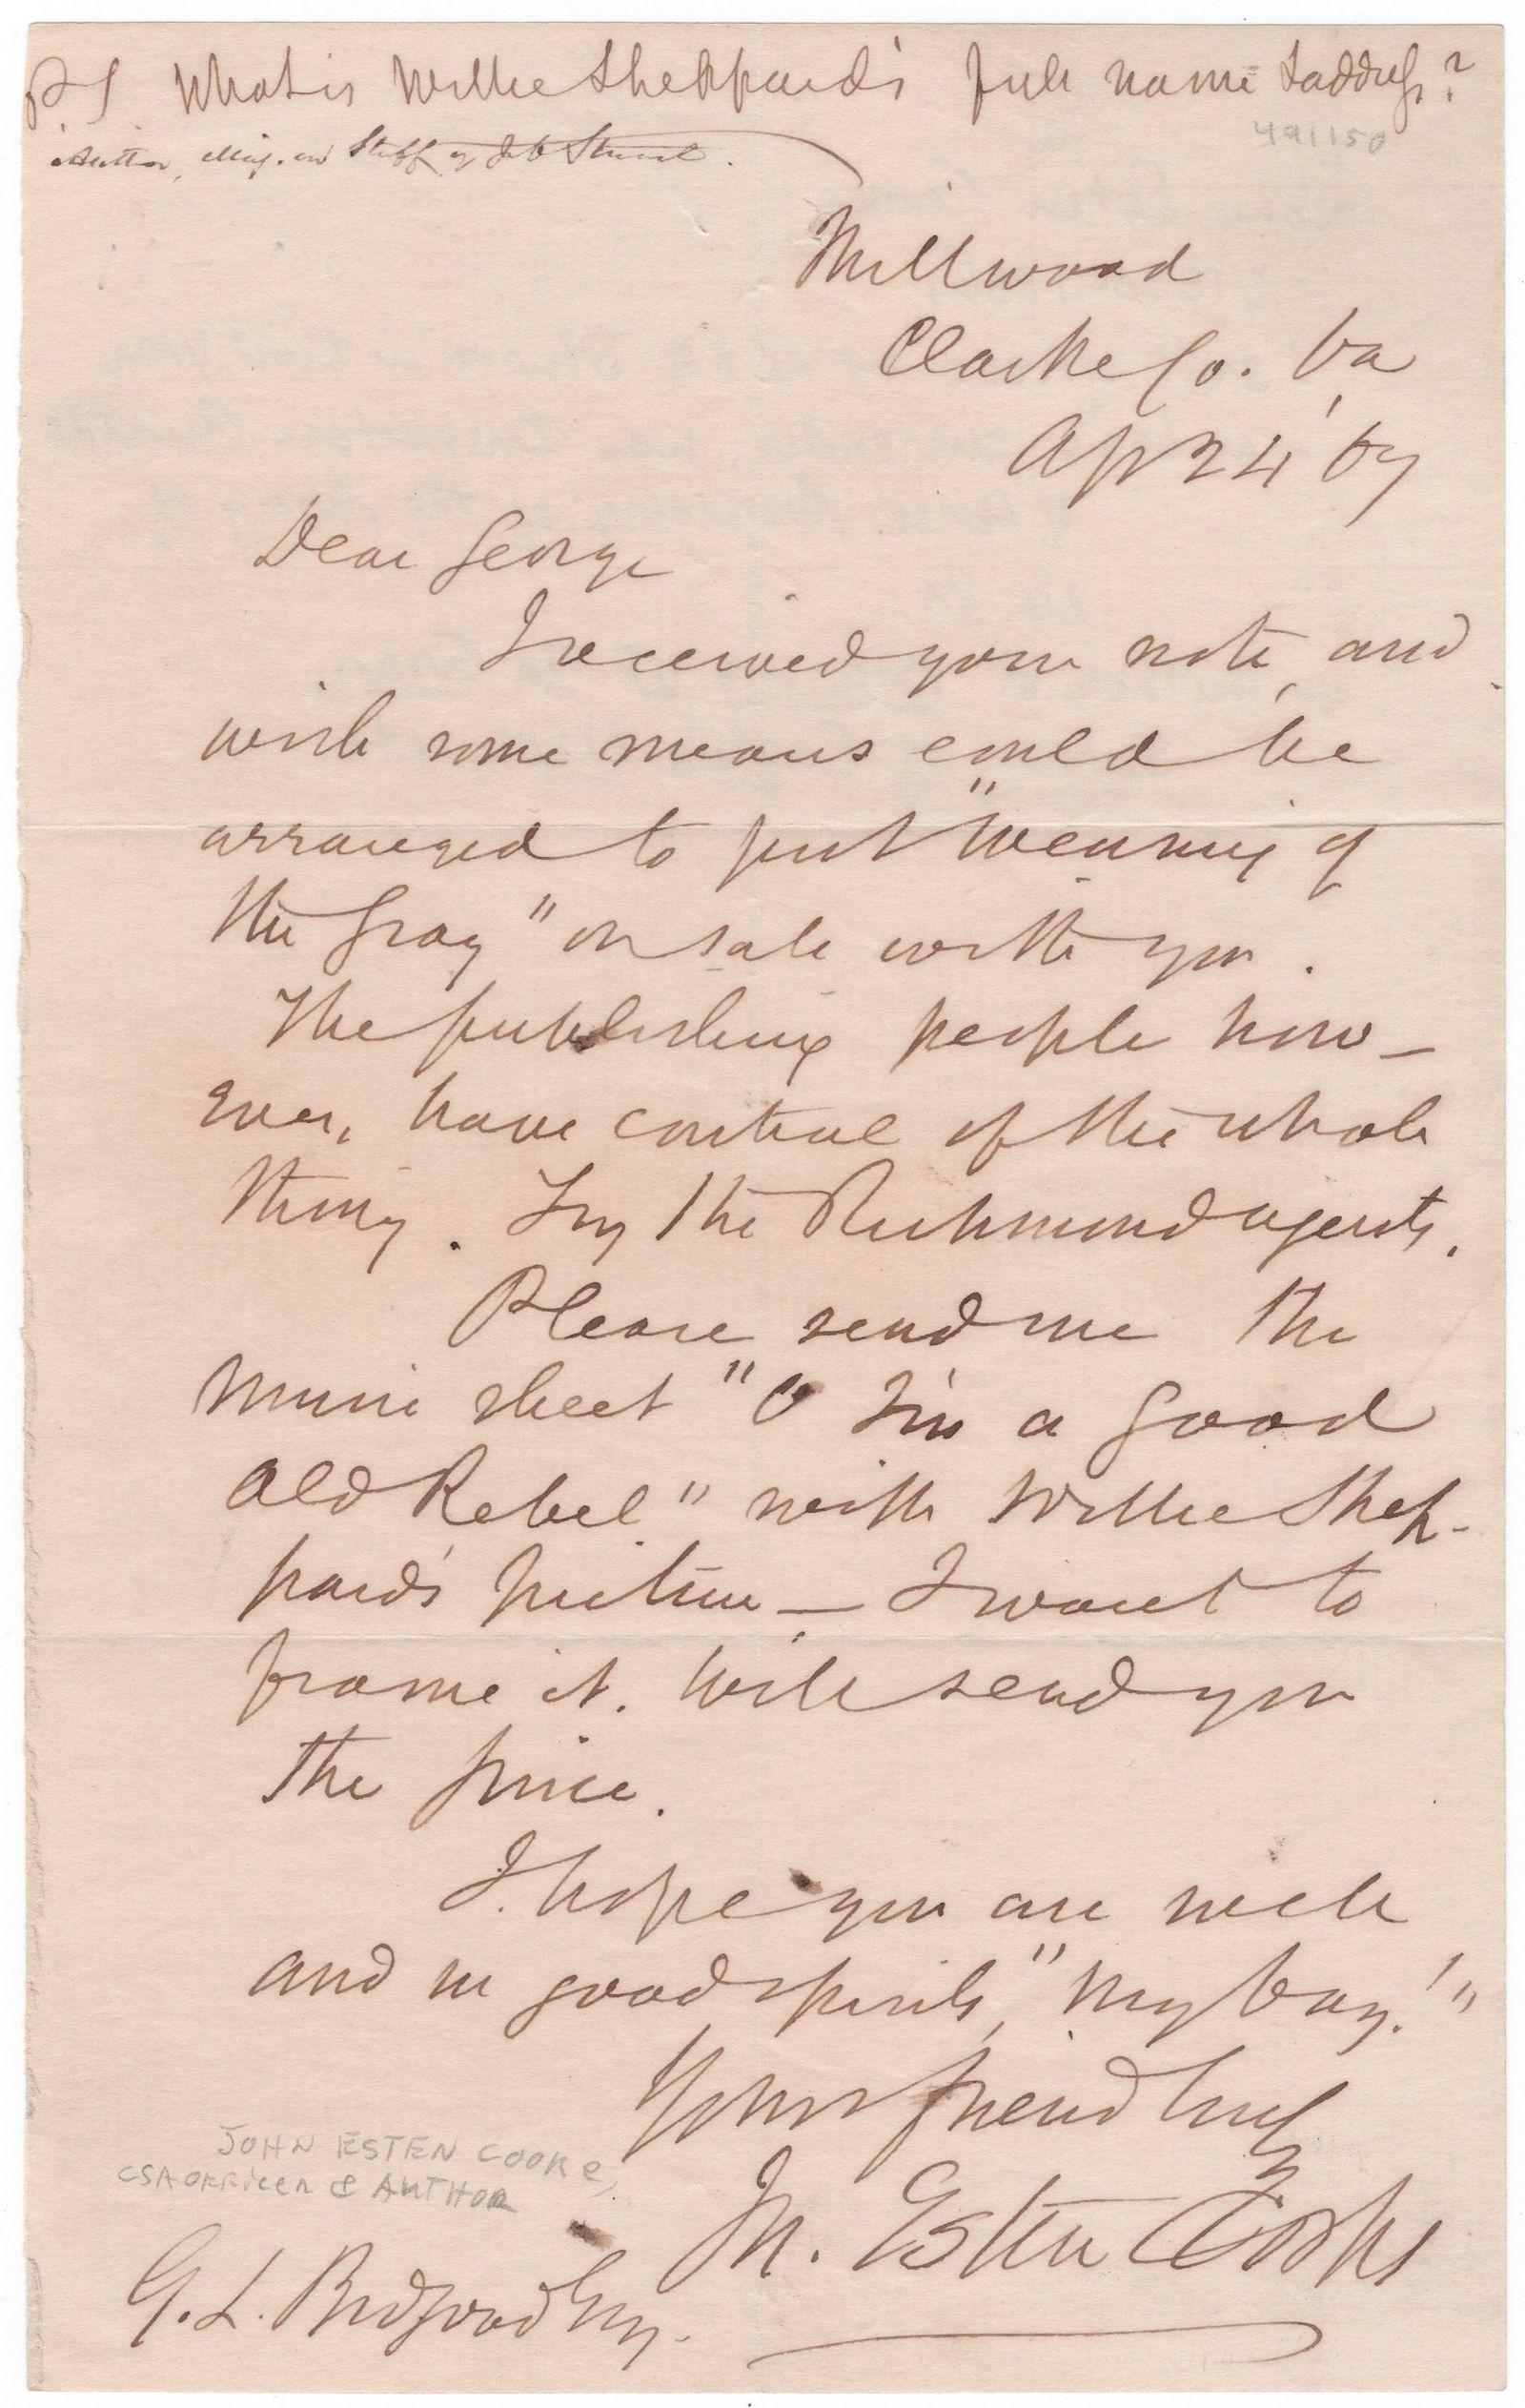 P.S. What is Willie Sheppard's full name & address?
491150
Author, Maj. on Staff of Jeb Stuart.
Millwood
Clarke Co. Va
Ap 24 '67
Dear George
I received your note, and
wish some means could be
arranged to put "Wearing of
the Gray" on sale with you.
The publishing people how-
ever, have control of the whole
thing. Try the Richmond agents.
Please send me the
music sheet "O I'm a Good
Old Rebel" with Willie Shep-
pard's picture — I want to
frame it. Will send you
the price.
I hope you are well
and in good spirits, "my boy!"
Yours friendlily
Jn. Esten Cooke
JOHN ESTEN COOKE,
CSA OFFICER & AUTHOR
G. L. Bidgood Esq.